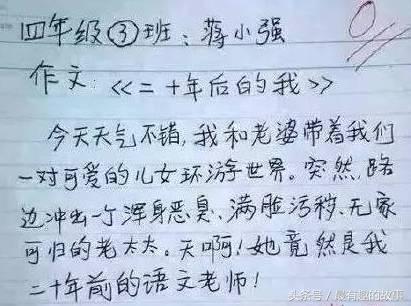 四年级③班:蒋小强
0
作文:<<二十年后的我>>
今天天气不错,我和老婆带着我们
一对可爱的儿女环游世界。突然,路
边冲出一个浑身恶臭、满脸污秽、无家
可归的老太太。天啊!她竟然是我
二十年前的语文老师!
头条号/最有趣的故事